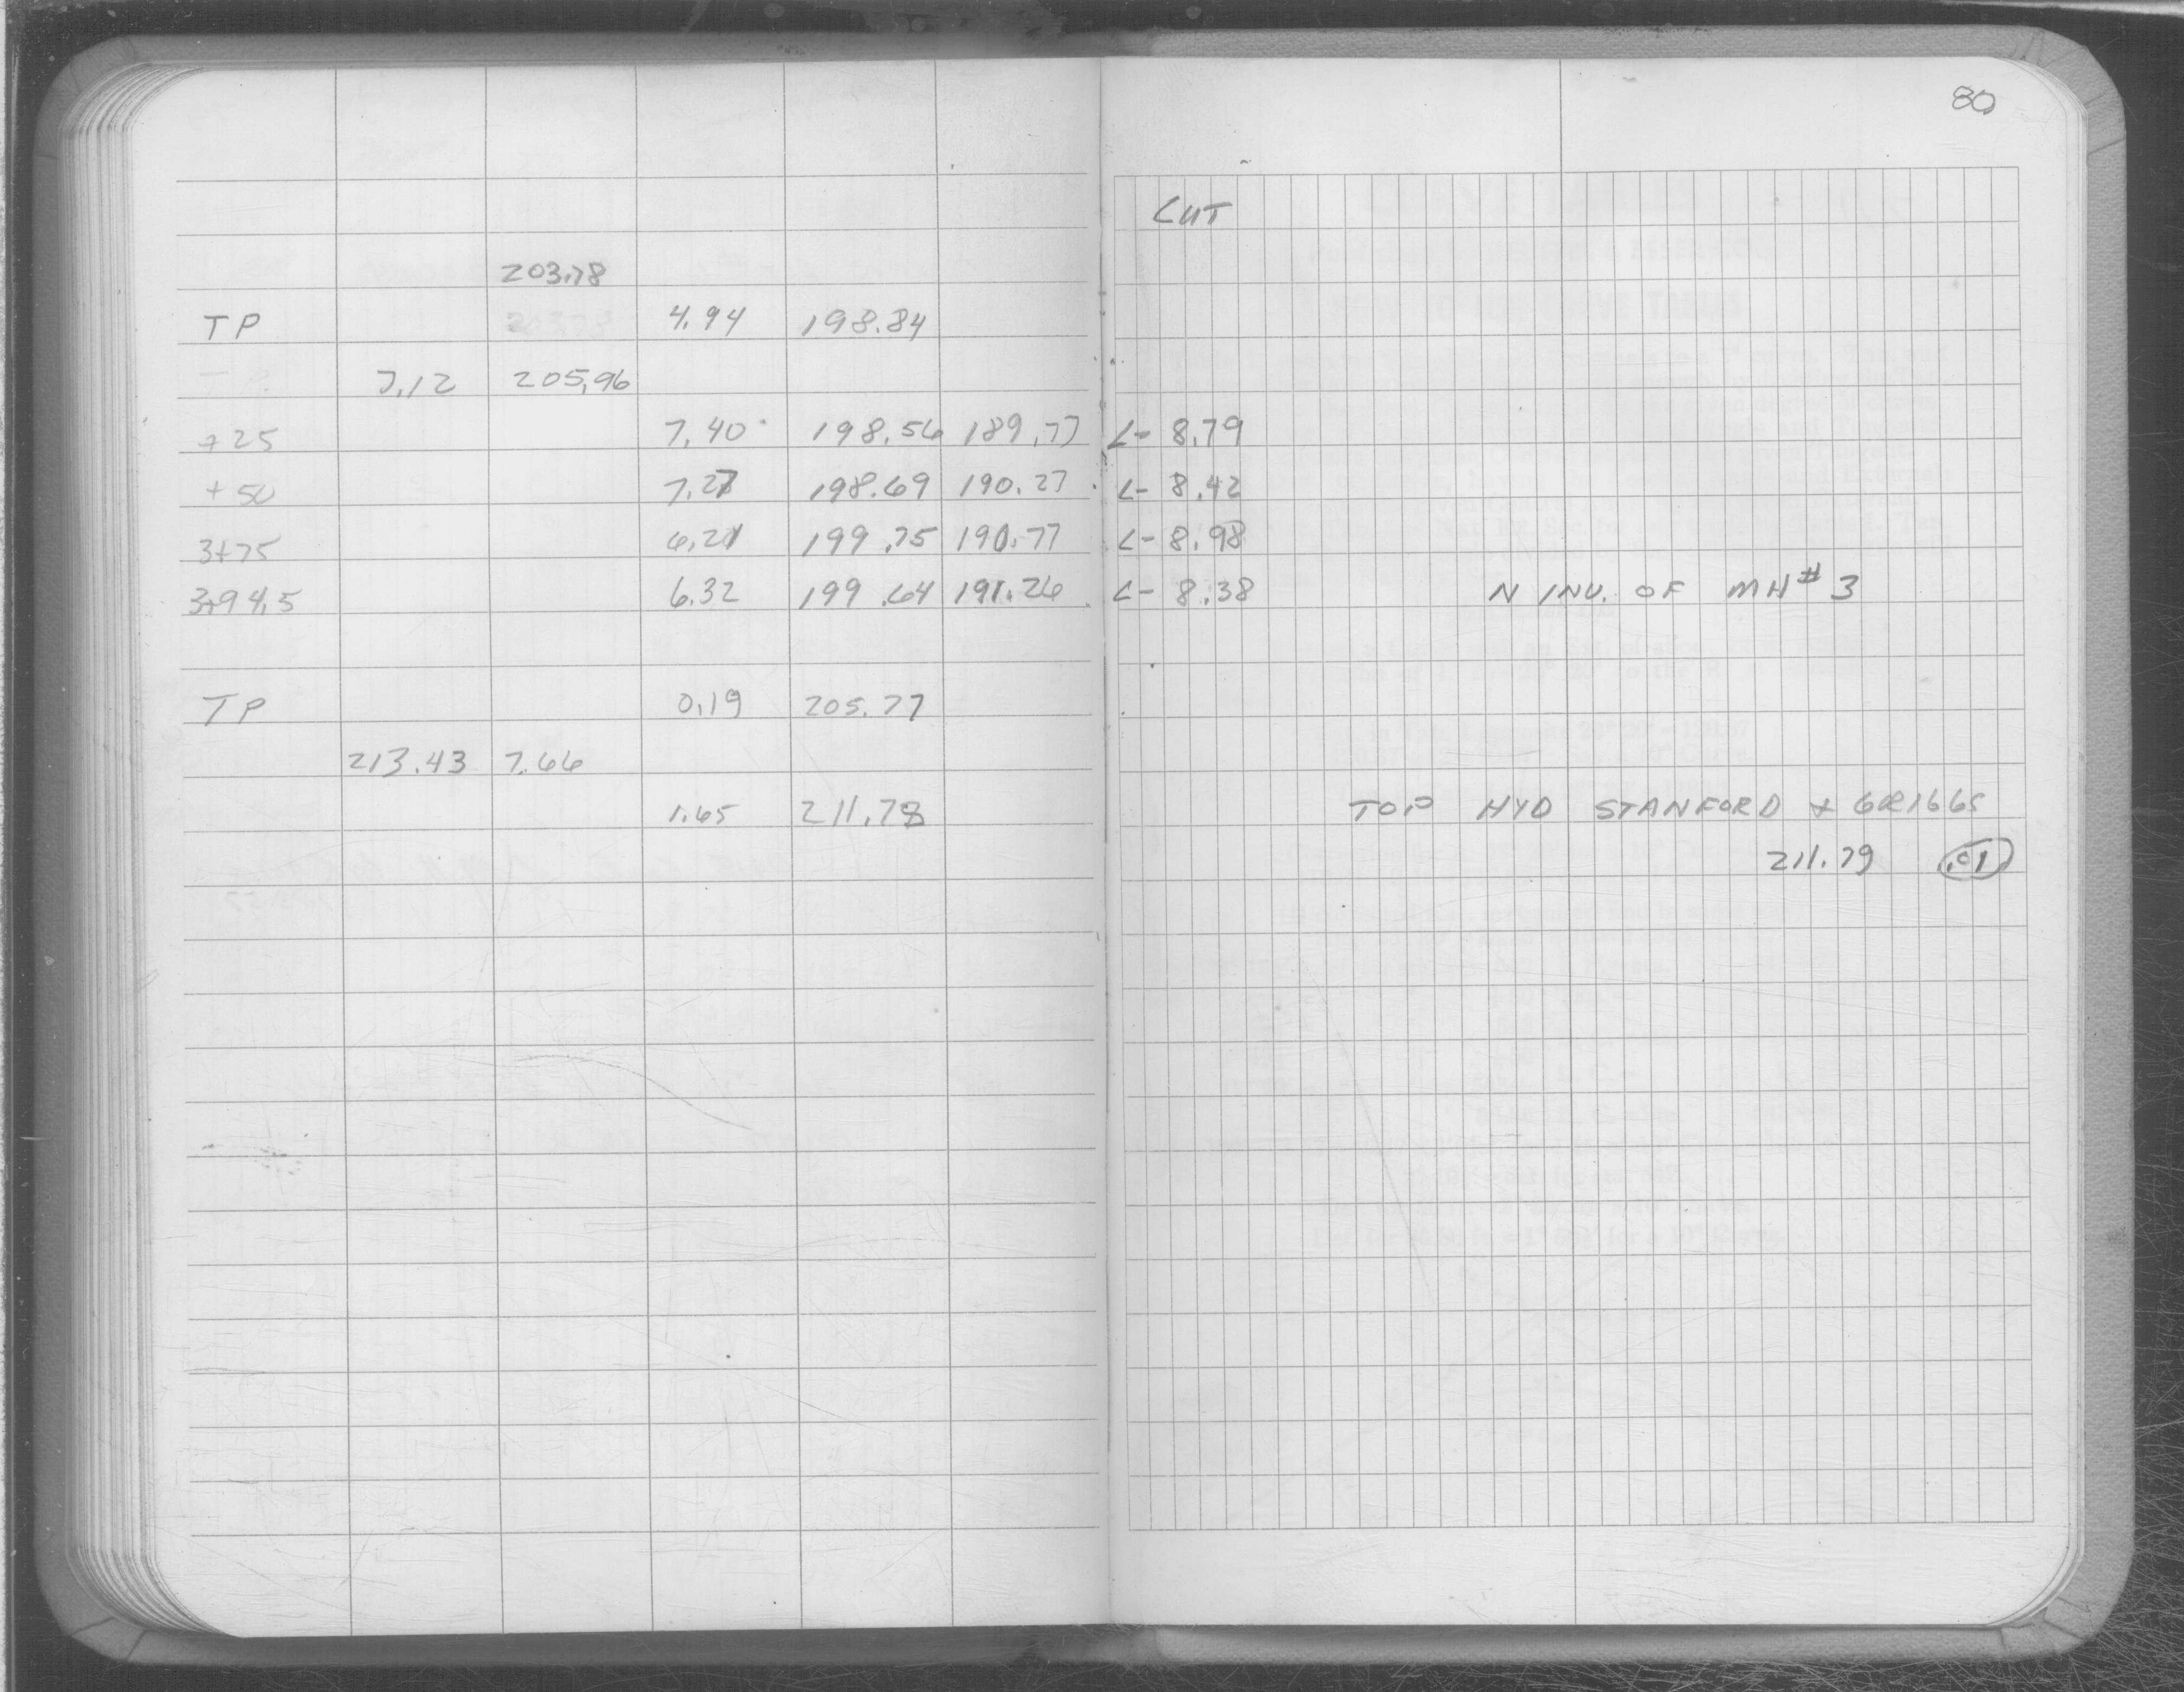 80
CUT
203.78
TP 4.94 198.84
7.12 205.96
+25 7.40 198.56 189.77 C- 8.79
+50 7.27 198.69 190.27 C- 8.42
3+75 6.21 199.75 190.77 C- 8.98
3+94.5 6.32 199.64 191.26 C- 8.38 N INV. OF MH# 3
TP 0.19 205.77
213.43 7.66
1.65 211.78 TOP HYD STANFORD + GRIGGS
211.79 .01